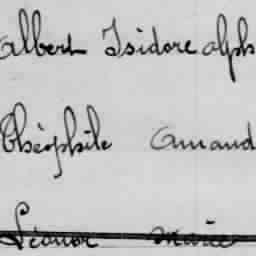 Albert Isidore alph
Théophile Amand
Léonor Marie